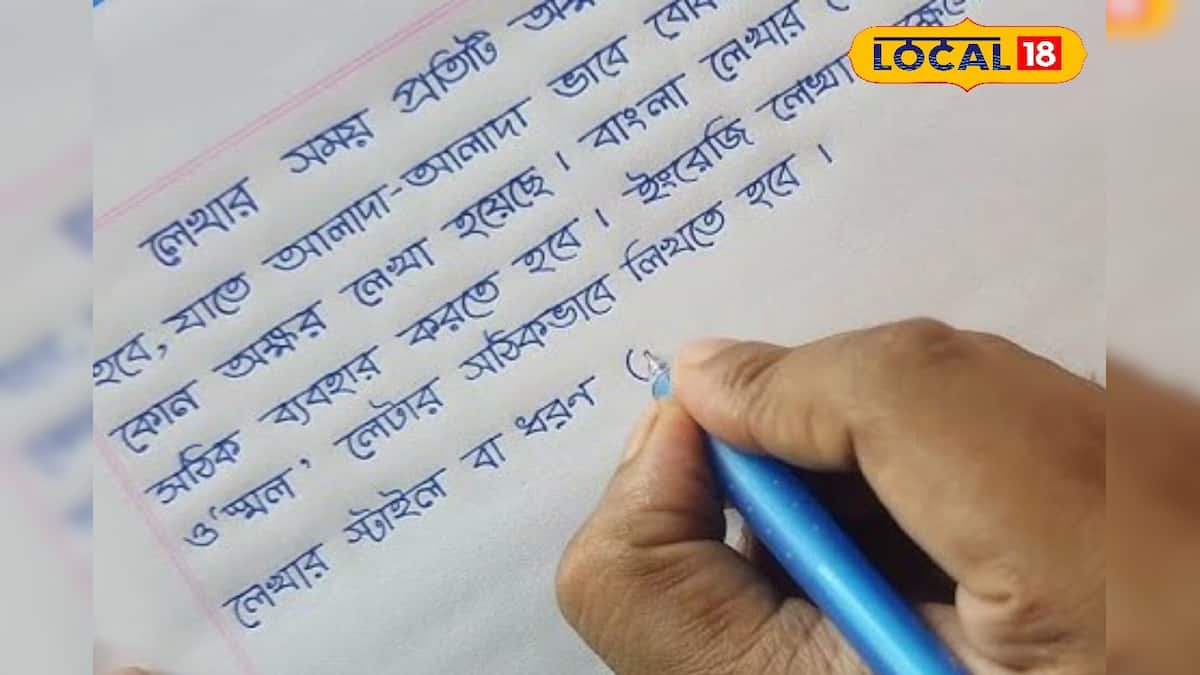 LOCAL 18
লেখার সময় প্রতিটি
হবে, যাতে আলাদা-আলাদা ভাবে
কোন অক্ষর লেখা হয়েছে। বাংলা লেখার
সঠিক ব্যবহার করতে হবে। ইংরেজি লেখার
ও 'স্মল' লেটার সঠিকভাবে লিখতে হবে।
লেখার স্টাইল বা ধরণ